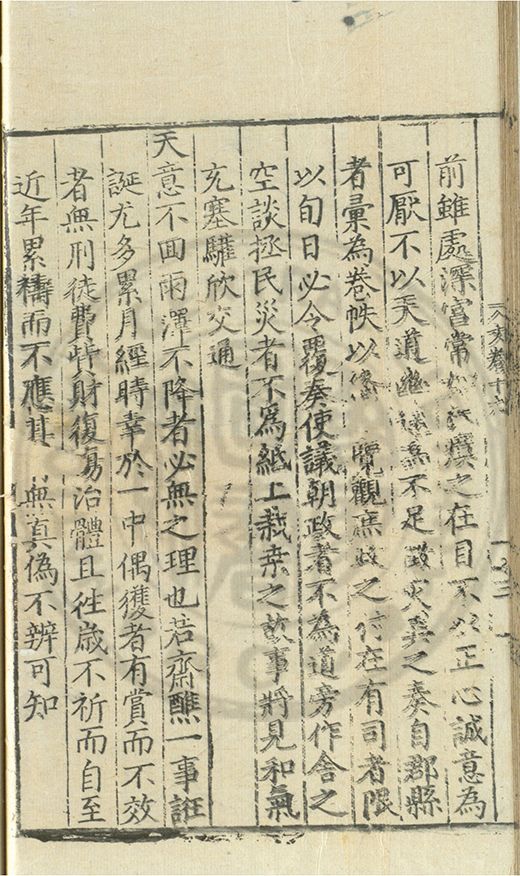 前雖處深宮常如民瘼之在目不以正心誠意為
可厭不以天道幽遠為不足徵災異之奏自郡縣
者彙為卷帙以備 覽觀庶政之付在有司者限
以旬日必令覆奏使議朝政者不為道旁作舍之
空談拯民災者不爲紙上栽桑之故事將見和氣
充塞驩欣交通
天意不回雨澤不降者必無之理也若齋醮一事誑
誕尤多累月經時幸於一中偶獲者有賞而不效
者無刑徒費貲財復傷治體且往歲不祈而自至
近年累禱而不應其 無真偽不辨可知